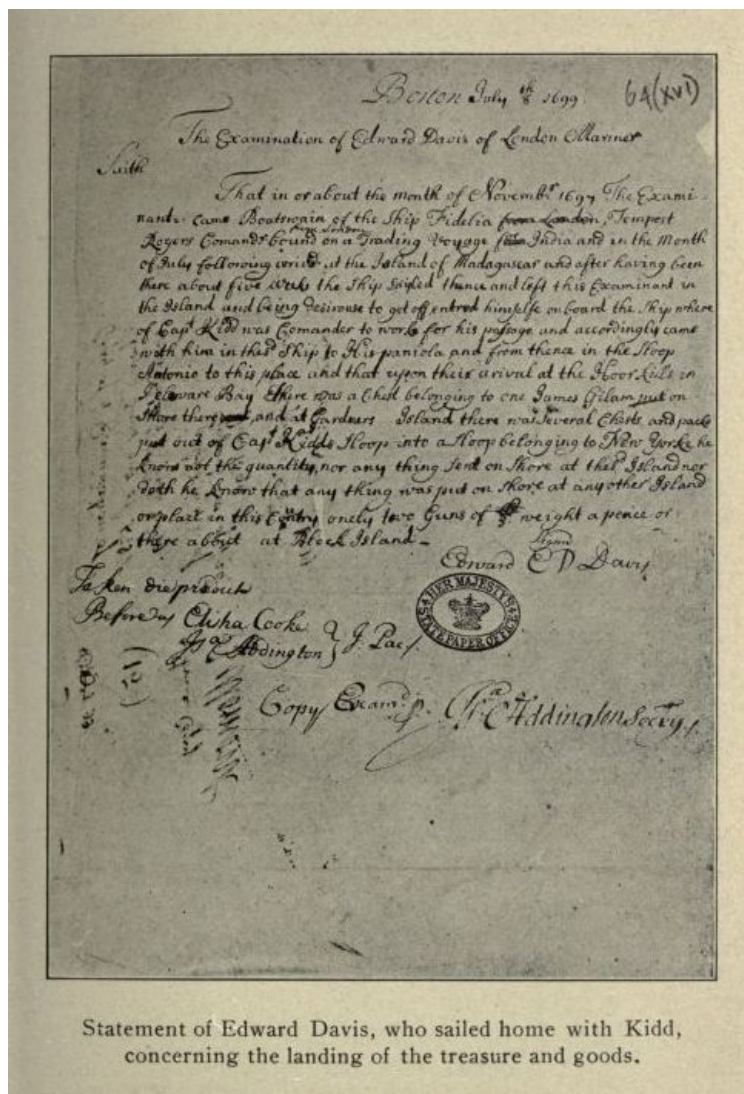 Boston July 8th 1699.
64(xvi)
The Examination of Edward Davis of London Mariner
Saith
That in or about the month of Novembr 1697 The Exami-
nante came Boatswain of the Ship Fidelia from London, Tempest
from London
Rogers Comandr bound on a Trading Voyage for India and in the Month
of July following arived at the Island of Madagascar and after having been
there about five weeks the Ship sailed thence and left this Examinant in
the Island and being desirouse to get off entred himselfe on board the Ship where
of Capt Kidd was Comander to worke for his passage and accordingly came
with him in the sd Ship to Hispaniola and from thence in the Sloop
Antonio to this place and that upon their arival at the Hoor Kills in
Delaware Bay there was a Chest belonging to one James Gilam put on
Shore there and at Gardners Island there was Several Chests and packs
put out of Capt Kidds Sloop into a Sloop belonging to New Yorke he
knows not the quantity, nor any thing sent on Shore at the sd Island nor
doth he know that any thing was put on Shore at any other Island
or place in this Contry onely two Guns of weight a peice or
there about at Block Island
Signn
Edward E D Davis
Taken die prdict
Before us Elisha Cooke
Isa Addington } J. Pac
HER MAJESTY'S
STATE PAPER OFFICE
Copy Examd p. Isa Addington Secry
Statement of Edward Davis, who sailed home with Kidd,
concerning the landing of the treasure and goods.